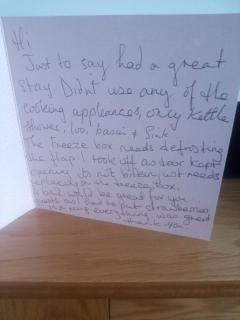 Hi
Just to say had a great
stay Didn't use any of the
cooking appleances, only kettle
shower, loo, basin & Sink.
The Freeze box needs defrosting
the flap I took off as door kept
opening its not broken just needs
replacing on the freeze box.
A bowl would be great for your
guests as I had to put strawberries
in a mug everything was great
thank-you